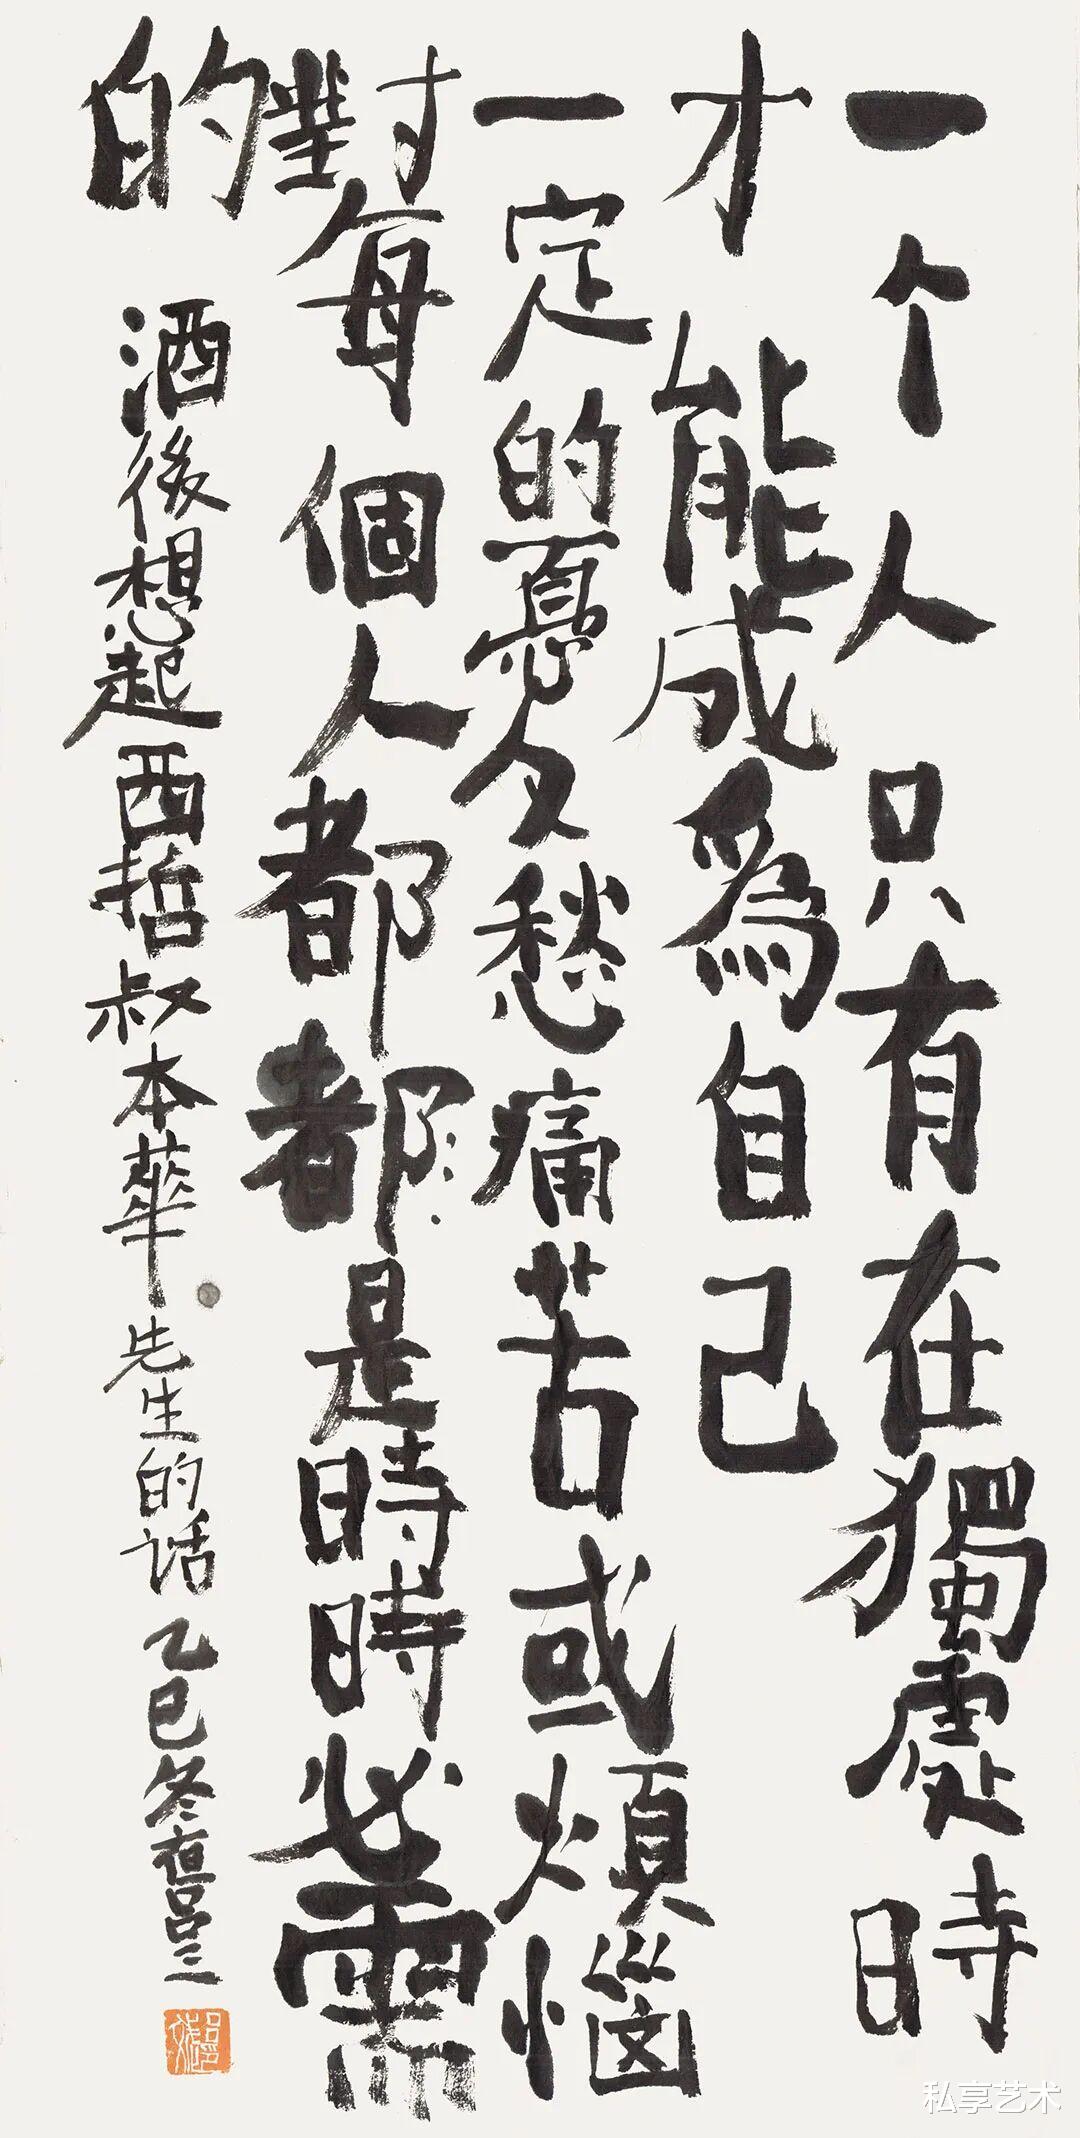 一个人只有在獨處時
才能成爲自己
一定的憂愁痛苦或煩惱
對每個人都都是時時必需
的
酒後想起西哲叔本華先生的话乙巳冬夜吕三
私享艺术